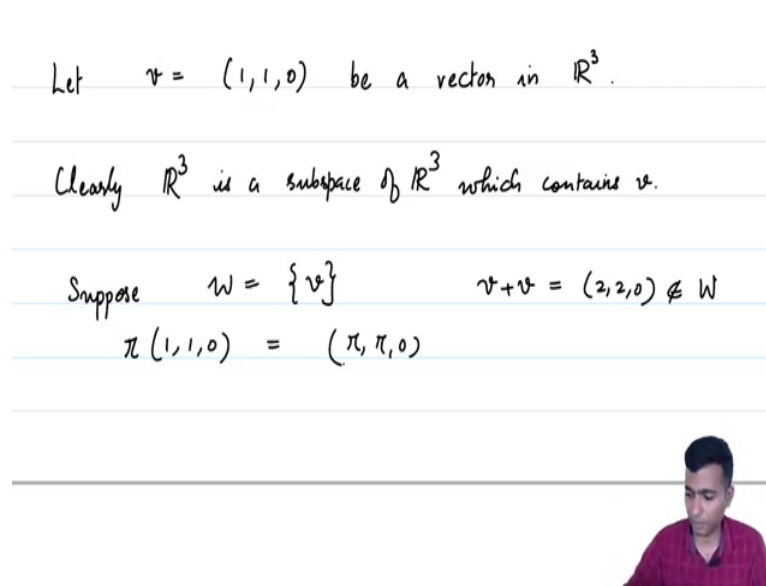 Let v = (1,1,0) be a vector in ℝ³.
Clearly ℝ³ is a subspace of ℝ³ which contains v.
Suppose W = {v} v+v = (2,2,0) ∉ W
π(1,1,0) = (π, π,0)